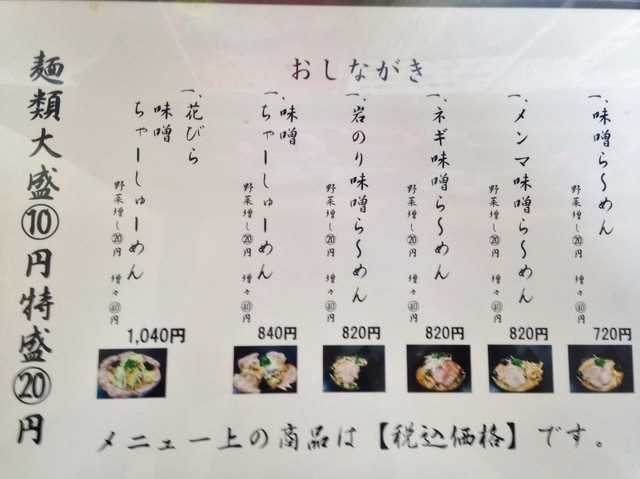 おしながき
一、味噌ら〜めん
野菜増し⑳円 増々㊵円
720円
一、メンマ味噌ら〜めん
野菜増し⑳円 増々㊵円
820円
一、ネギ味噌ら〜めん
野菜増し⑳円 増々㊵円
820円
一、岩のり味噌ら〜めん
野菜増し⑳円 増々㊵円
820円
一、味噌
ちゃーしゅーめん
野菜増し⑳円 増々㊵円
840円
一、花びら
味噌
ちゃーしゅーめん
野菜増し⑳円 増々㊵円
1,040円
麺類大盛⑩円特盛⑳円
メニュー上の商品は【税込価格】です。